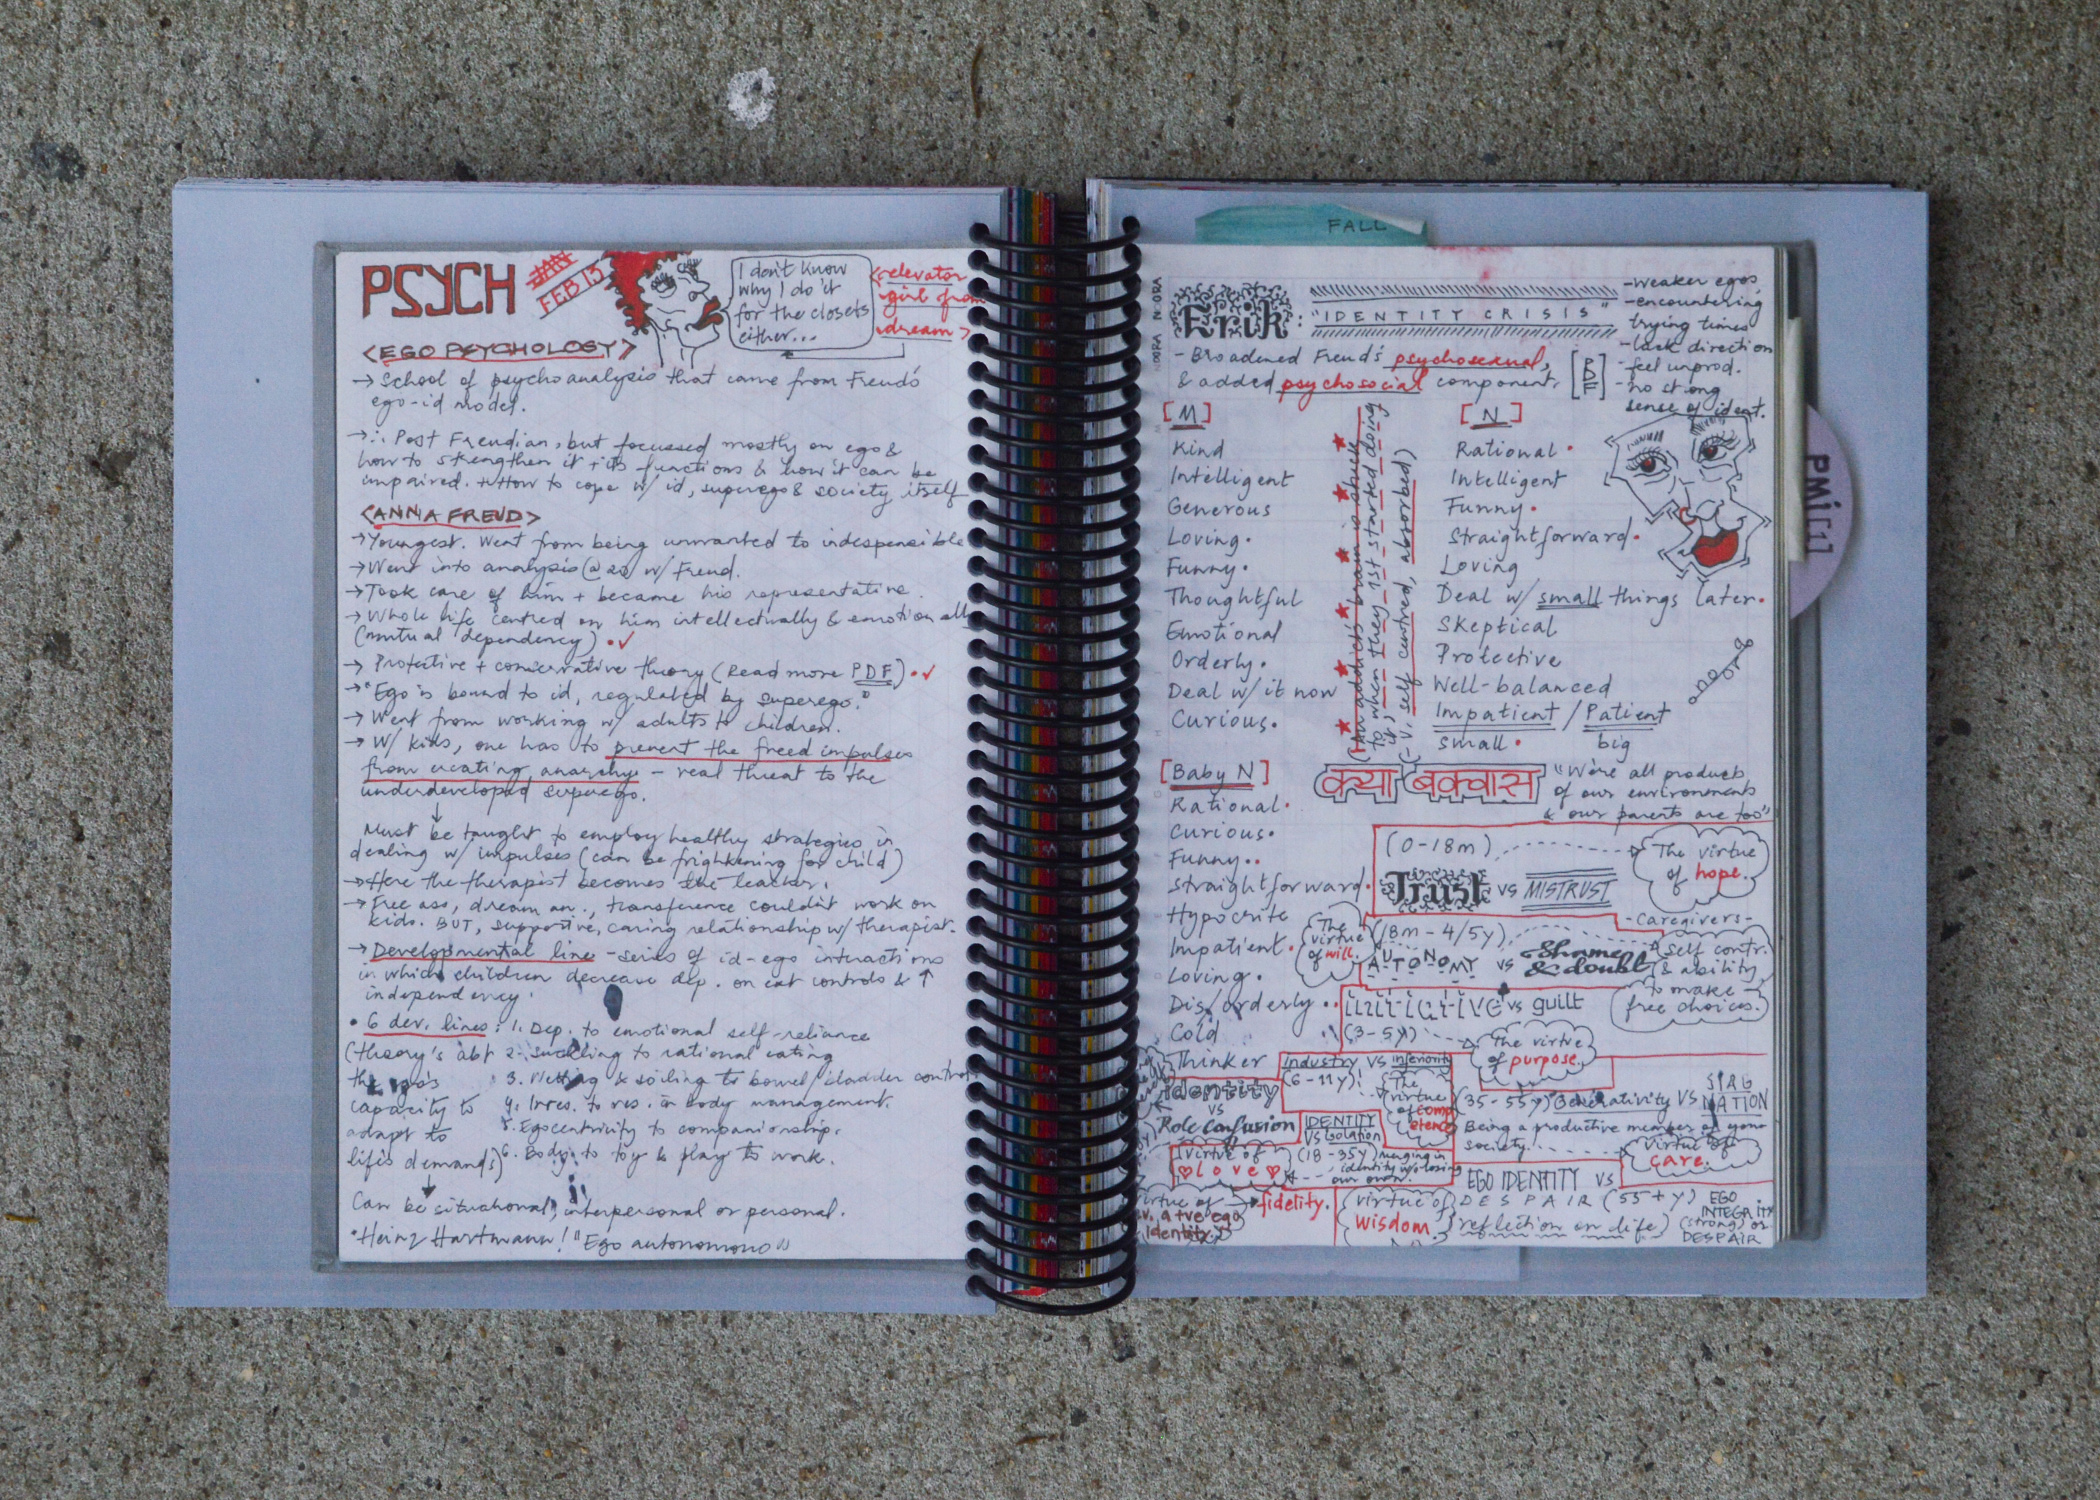 PSYCH
JAN
FEB 13
I don't know
why I do it
for the closets
either...
<elevator
girl from
dream>
<EGO PSYCHOLOGY>
→ School of psychoanalysis that came from Freud's
ego-id model.
→ ∴ Post Freudian, but focussed mostly on ego &
how to strengthen it + its functions & how it can be
impaired. + How to cope w/ id, superego & society itself
<ANNA FREUD>
→ Youngest. Went from being unwanted to indespensible
→ Went into analysis @ 20 w/ Freud.
→ Took care of him + became his representative.
→ Whole life centred on him intellectually & emotionally
(mutual dependency) • ✓
→ Protective + conservative theory (Read more PDF) • ✓
→ "Ego is bound to id, regulated by superego."
→ Went from working w/ adults to children.
→ W/ kids, one has to prevent the freed impulses
from creating anarchy – real threat to the
underdeveloped superego.
Must be taught to employ healthy strategies in
dealing w/ impulses (can be frightening for child)
→ Here the therapist becomes the teacher.
→ Free ass, dream an., transference couldn't work on
kids. BUT, supportive, caring relationship w/ therapist.
→ Developmental line – series of id-ego interactions
in which children decrease dep. on ext controls & ↑
independency.
• 6 dev. lines: 1. Dep. to emotional self-reliance
(theory's abt 2. Suckling to rational eating
the ego's 3. Wetting & soiling to bowel/bladder control
capacity to 4. Irres. to res. in body management.
adapt to 5. Egocentricity to companionship.
life's demands) 6. Body to toy & play to work.
Can be situational, interpersonal or personal.
• Heinz Hartmann! "Ego autonomono"
FALL
NOORA NOORA
Erik: "IDENTITY CRISIS"
- weaker egos
- encountering
trying times
- lack direction
- feel unprod.
- no strong
sense of ident.
- Broadened Freud's psychosexual,
& added psychosocial component. [PDF]
[M]
Kind
Intelligent
Generous
Loving.
Funny.
Thoughtful
Emotional
Orderly.
Deal w/ it now
Curious.
(An addict's brain is stuck
to when they 1st started doing
it, self centred, absorbed)
[N]
Rational •
Intelligent
Funny •
Straightforward •
Loving
Deal w/ small things later •
Skeptical
Protective
Well-balanced
Impatient / Patient
small • big
PMI [1]
[Baby N]
Rational •
Curious •
Funny • •
Straightforward •
Hypocrite
Impatient •
Loving •
Dis/orderly • •
Cold
Thinker
क्या बकवास
"We're all products
of our environments
& our parents are too"
(0-18m)
Trust vs MISTRUST
The virtue
of hope.
- Caregivers -
The
virtue
of will.
(18m - 4/5y)
AUTONOMY vs Shame
& doubt
Self contr.
& ability
to make
free choices.
initiative vs guilt
(3-5y)
The virtue
of purpose.
Industry vs inferiority
(6-11y)
The
virtue
of comp
etence
identity
vs
Role confusion
virtue of
fidelity.
IDENTITY
vs isolation
(18-35y) merging in
identity w/o losing
our own.
Virtue of
love
(35-55y) Generativity vs STAG
NATION
Being a productive member of your
society.
virtue of
care.
EGO IDENTITY vs
DESPAIR (55+y)
(reflection on life)
virtue of
wisdom.
EGO
INTEGRITY
(strong) or
DESPAIR